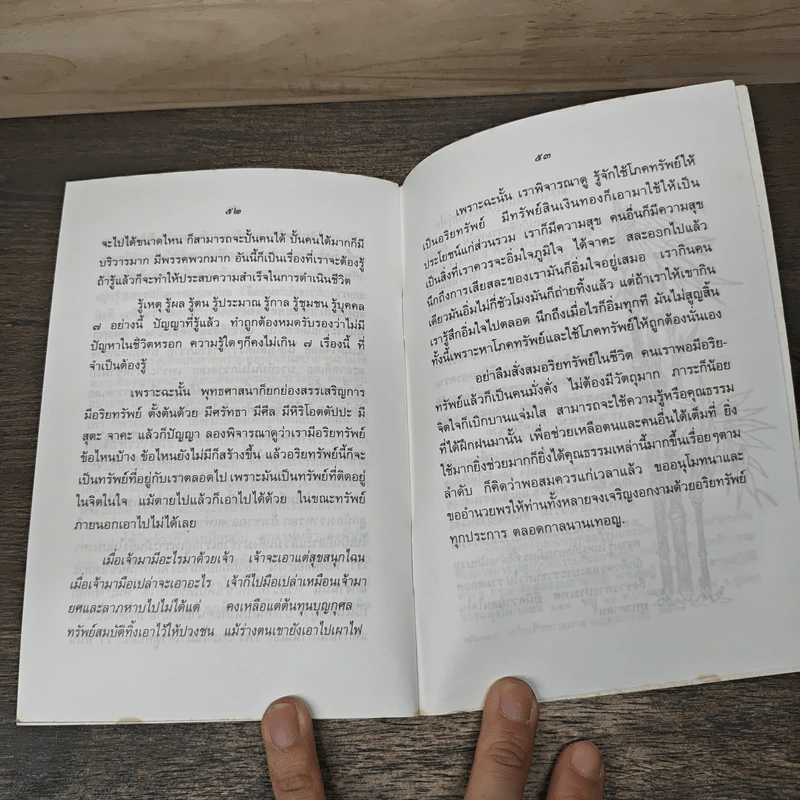 ๕๒
จะไปได้ขนาดไหน ก็สามารถจะปั้นคนได้ ปั้นคนได้มากก็มี
บริวารมาก มีพรรคพวกมาก อันนี้ก็เป็นเรื่องที่เราจะต้องรู้
ถ้ารู้แล้วก็จะทำให้ประสบความสำเร็จในการดำเนินชีวิต
รู้เหตุ รู้ผล รู้ตน รู้ประมาณ รู้กาล รู้ชุมชน รู้บุคคล
๗ อย่างนี้ ปัญญาที่รู้แล้ว ทำถูกต้องหมดรับรองว่าไม่มี
ปัญหาในชีวิตหรอก ความรู้ใดๆก็คงไม่เกิน ๗ เรื่องนี้ ที่
จำเป็นต้องรู้
เพราะฉะนั้น พุทธศาสนาก็ยกย่องสรรเสริญการ
มีอริยทรัพย์ ตั้งต้นด้วย มีศรัทธา มีศีล มีหิริโอตตัปปะ มี
สุตะ จาคะ แล้วก็ปัญญา ลองพิจารณาดูว่าเรามีอริยทรัพย์
ข้อไหนบ้าง ข้อไหนยังไม่มีก็สร้างขึ้น แล้วอริยทรัพย์นี้ก็จะ
เป็นทรัพย์ที่อยู่กับเราตลอดไป เพราะมันเป็นทรัพย์ที่ติดอยู่
ในจิตในใจ แม้ตายไปแล้วก็เอาไปได้ด้วย ในขณะทรัพย์
ภายนอกเอาไปไม่ได้เลย
เมื่อเจ้ามามีอะไรมาด้วยเจ้า เจ้าจะเอาแต่สุขสนุกไฉน
เมื่อเจ้ามามือเปล่าจะเอาอะไร เจ้าก็ไปมือเปล่าเหมือนเจ้ามา
ยศและลาภหาบไปไม่ได้แต่ คงเหลือแต่ต้นทุนบุญกุศล
ทรัพย์สมบัติทิ้งเอาไว้ให้ปวงชน แม้ร่างตนเขายังเอาไปเผาไฟ
๕๓
เพราะฉะนั้น เราพิจารณาดู รู้จักใช้โภคทรัพย์ให้
เป็นอริยทรัพย์ มีทรัพย์สินเงินทองก็เอามาใช้ให้เป็น
ประโยชน์แก่ส่วนรวม เราก็มีความสุข คนอื่นก็มีความสุข
เป็นสิ่งที่เราควรจะอิ่มใจภูมิใจ ได้จาคะ สละออกไปแล้ว
นึกถึงการเสียสละของเรามันก็อิ่มใจอยู่เสมอ เรากินคน
เดียวมันอิ่มไม่กี่ชั่วโมงมันก็ถ่ายทิ้งแล้ว แต่ถ้าเราให้เขากิน
เรารู้สึกอิ่มใจไปตลอด นึกถึงเมื่อไรก็อิ่มทุกที มันไม่สูญสิ้น
ทั้งนี้เพราะหาโภคทรัพย์และใช้โภคทรัพย์ให้ถูกต้องนั่นเอง
อย่าลืมสั่งสมอริยทรัพย์ในชีวิต คนเราพอมีอริย-
ทรัพย์แล้วก็เป็นคนมั่งคั่ง ไม่ต้องมีวัตถุมาก ภาระก็น้อย
จิตใจก็เบิกบานแจ่มใส สามารถจะใช้ความรู้หรือคุณธรรม
ที่ได้ฝึกฝนมานั้น เพื่อช่วยเหลือตนและคนอื่นได้เต็มที่ ยิ่ง
ใช้มากยิ่งช่วยมากก็ยิ่งได้คุณธรรมเหล่านี้มากขึ้นเรื่อยๆตาม
ลำดับ ก็คิดว่าพอสมควรแก่เวลาแล้ว ขออนุโมทนาและ
ขออำนวยพรให้ท่านทั้งหลายจงเจริญงอกงามด้วยอริยทรัพย์
ทุกประการ ตลอดกาลนานเทอญ.